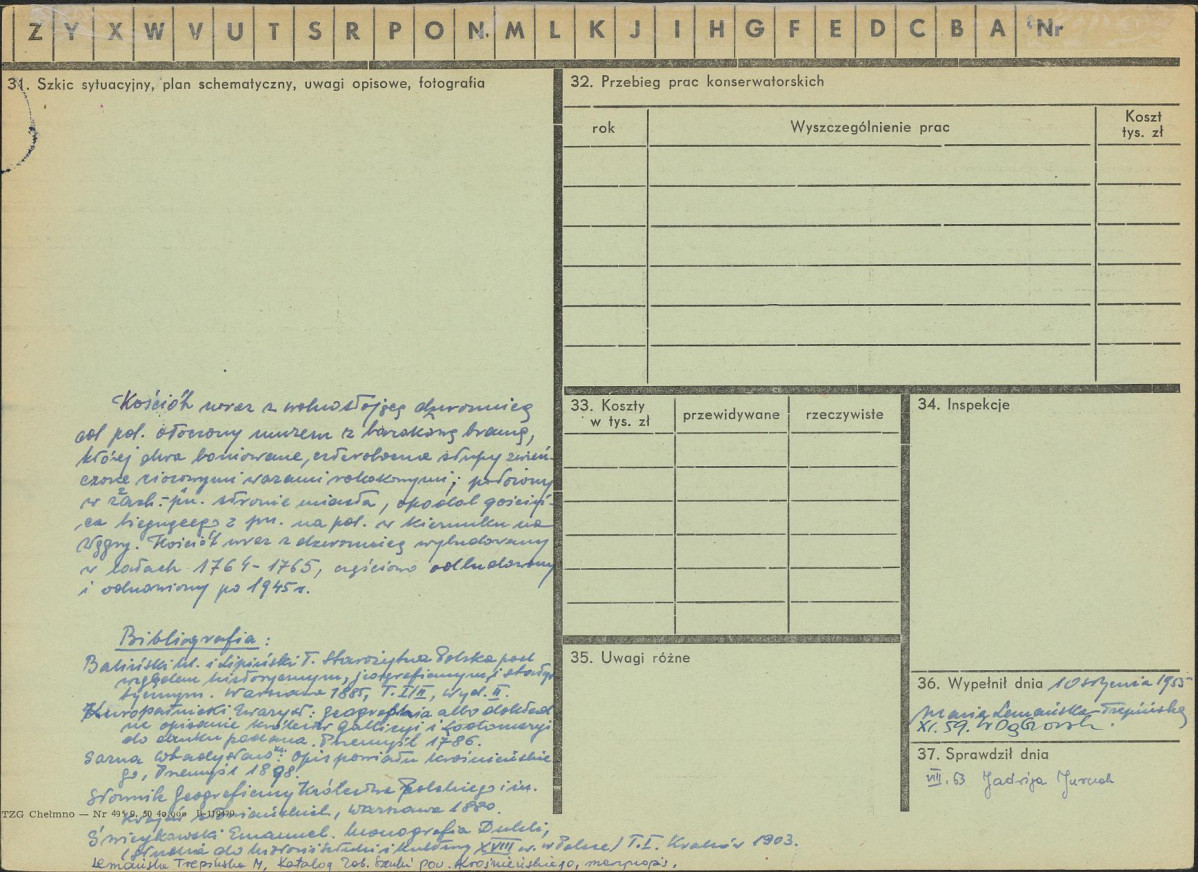 Z Y X W V U T S R P O N M L K J I H G F E D C B A Nr
31. Szkic sytuacyjny, plan schematyczny, uwagi opisowe, fotografia
Kościół wraz z wolnostojącą dzwonnicą
od poł. otoczony murem z barokową bramą,
której dwa boniowane, czworoboczne słupy zwień-
czone ciosowymi wazami rokokowymi; położony
w zach.-pn. stronie miasta, opodal gościń-
ca biegnącego z pn. na poł. w kierunku na
Węgry. Kościół wraz z dzwonnicą wybudowany
w latach 1764-1765, częściowo odbudowany
i odnowiony po 1945 r.
Bibliografia:
Baliński M. i Lipiński T. Starożytna Polska pod
względem historycznym, jeograficznym i staty-
stycznym. Warszawa 1885, T. I/II, wyd. II.
Kuropatnicki Ewaryst: Geographia albo dokład-
ne opisanie królestw Gallicyi i Lodomeryi
do druku podana. Przemyśl 1786.
Sarna Władysław ks.: Opis powiatu krośnieńskie-
go, Przemyśl 1898.
Słownik Geograficzny Królestwa Polskiego i in.
krajów słowiańskich, Warszawa 1880.
Świeykowski Emanuel. Monografia Dukli,
(Studia do historii sztuki i kultury XVIII w. w Polsce) T. I. Kraków 1903.
Lemańska Trepińska M, Katalog Zab. Sztuki pow. Krośnieńskiego, maszynopis.
TZG Chełmno — Nr
32. Przebieg prac konserwatorskich
rok
Wyszczególnienie prac
Koszt
tys. zł
33. Koszty
w tys. zł
przewidywane
rzeczywiste
34. Inspekcje
35. Uwagi różne
36. Wypełnił dnia 10 stycznia 1955
Maria Lemańska-Trepińska
XI. 59.
37. Sprawdził dnia
VIII. 63 Jadwiga